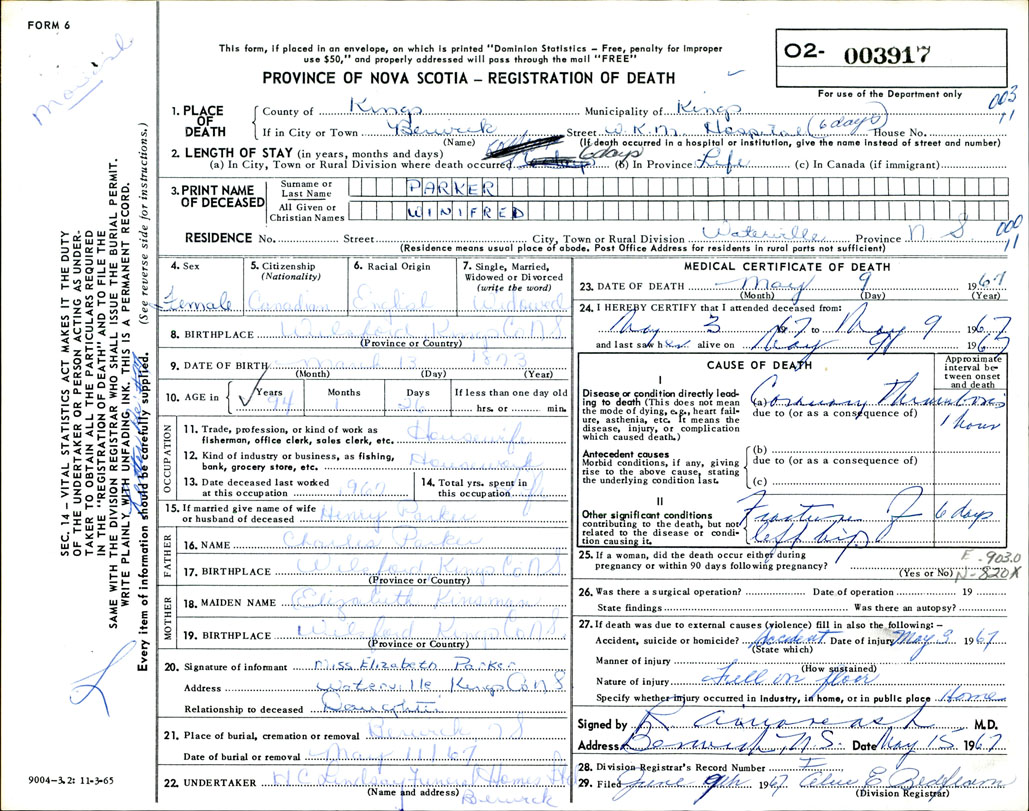 FORM 6
This form, if placed in an envelope, on which is printed "Dominion Statistics – Free, penalty for improper
use $50," and properly addressed will pass through the mail "FREE"
O2- 003917
PROVINCE OF NOVA SCOTIA – REGISTRATION OF DEATH
For use of the Department only
003
11
1. PLACE OF DEATH
County of Kings Municipality of Kings
If in City or Town Berwick Street W.K.M. Hospital (6 days) House No.
(Name) (If death occurred in a hospital or institution, give the name instead of street and number)
2. LENGTH OF STAY (in years, months and days)
(a) In City, Town or Rural Division where death occurred 6 days (b) In Province Life (c) In Canada (if immigrant)
3. PRINT NAME OF DECEASED
Surname or Last Name PARKER
All Given or Christian Names WINIFRED
RESIDENCE No. Street City, Town or Rural Division Waterville Province N S
000
11
(Residence means usual place of abode. Post Office Address for residents in rural parts not sufficient)
4. Sex
Female
5. Citizenship
(Nationality)
Canadian
6. Racial Origin
English
7. Single, Married,
Widowed or Divorced
(write the word)
Widowed
8. BIRTHPLACE Wilsford Kings Co N S
(Province or Country)
9. DATE OF BIRTH March 13 1873
(Month) (Day) (Year)
10. AGE in Years Months Days If less than one day old
94 1 26 hrs. or min.
OCCUPATION
11. Trade, profession, or kind of work as
fisherman, office clerk, sales clerk, etc. Housewife
12. Kind of industry or business, as fishing,
bank, grocery store, etc. Housework
13. Date deceased last worked
at this occupation 1967
14. Total yrs. spent in
this occupation
15. If married give name of wife
or husband of deceased Henry Parker
FATHER
16. NAME Charles Parker
17. BIRTHPLACE Wilsford Kings Co N S
(Province or Country)
MOTHER
18. MAIDEN NAME Elizabeth Kinsman
19. BIRTHPLACE Wilsford Kings Co N S
(Province or Country)
20. Signature of informant Miss Elizabeth Parker
Address Waterville Kings Co N S
Relationship to deceased Daughter
21. Place of burial, cremation or removal Berwick N S
Date of burial or removal May 11/67
22. UNDERTAKER H C Lindsay Funeral Homes
Berwick
(Name and address)
MEDICAL CERTIFICATE OF DEATH
23. DATE OF DEATH May 9 1967
(Month) (Day) (Year)
24. I HEREBY CERTIFY that I attended deceased from:
May 3 67 to May 9 1967
and last saw her alive on May 9 1967
CAUSE OF DEATH
Approximate
interval be-
tween onset
and death
I
Disease or condition directly lead-
ing to death (This does not mean
the mode of dying, e.g., heart fail-
ure, asthenia, etc. It means the
disease, injury, or complication
which caused death.)
(a) Coronary Thrombosis
due to (or as a consequence of)
1 hour
Antecedent causes
Morbid conditions, if any, giving
rise to the above cause, stating
the underlying condition last.
(b)
due to (or as a consequence of)
(c)
II
Other significant conditions
contributing to the death, but not
related to the disease or condi-
tion causing it.
Fracture of left hip
6 days
25. If a woman, did the death occur either during
pregnancy or within 90 days following pregnancy?
(Yes or No)
E-903.0
N-820X
26. Was there a surgical operation? Date of operation 19
State findings Was there an autopsy?
27. If death was due to external causes (violence) fill in also the following: –
Accident, suicide or homicide? Accident Date of injury May 3 1967
(State which)
Manner of injury
(How sustained)
Nature of injury Fell on floor
Specify whether injury occurred in industry, in home, or in public place Home
Signed by M.D.
Address Berwick, N.S. Date May 15 1967
28. Division Registrar's Record Number
29. Filed June 9th 1967
(Division Registrar)
SEC. 14 – VITAL STATISTICS ACT MAKES IT THE DUTY
OF THE UNDERTAKER OR PERSON ACTING AS UNDER-
TAKER TO OBTAIN ALL THE PARTICULARS REQUIRED
IN THE "REGISTRATION OF DEATH" AND TO FILE THE
SAME WITH THE DIVISION REGISTRAR WHO SHALL ISSUE THE BURIAL PERMIT.
WRITE PLAINLY WITH UNFADING INK. THIS IS A PERMANENT RECORD.
Every item of information should be carefully supplied. (See reverse side for instructions.)
9004-3.2: 11-3-65